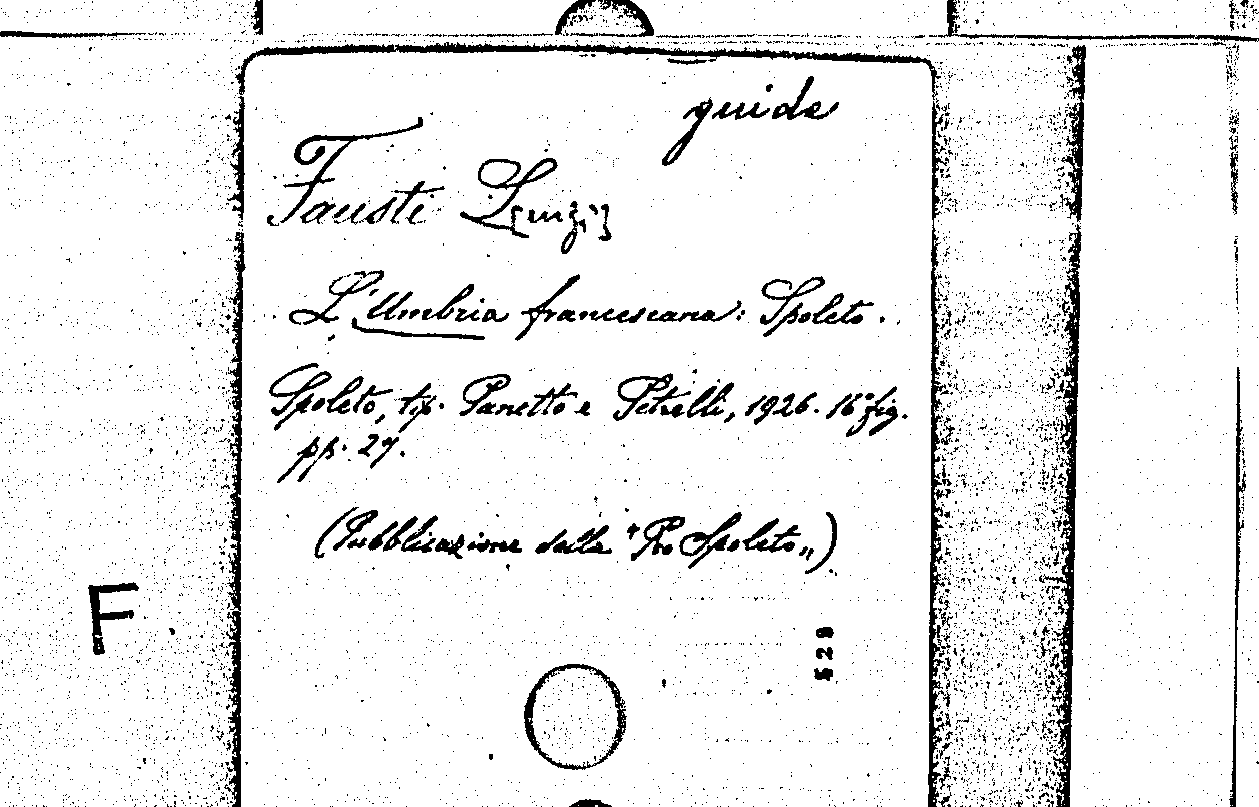 guide
Fausti L[uigi]
L'Umbria francescana: Spoleto.
Spoleto, tip. Panetto e Petrelli, 1926. 16° fig.
pp. 27.
(Pubblicazione della "Pro Spoleto„)
F
529